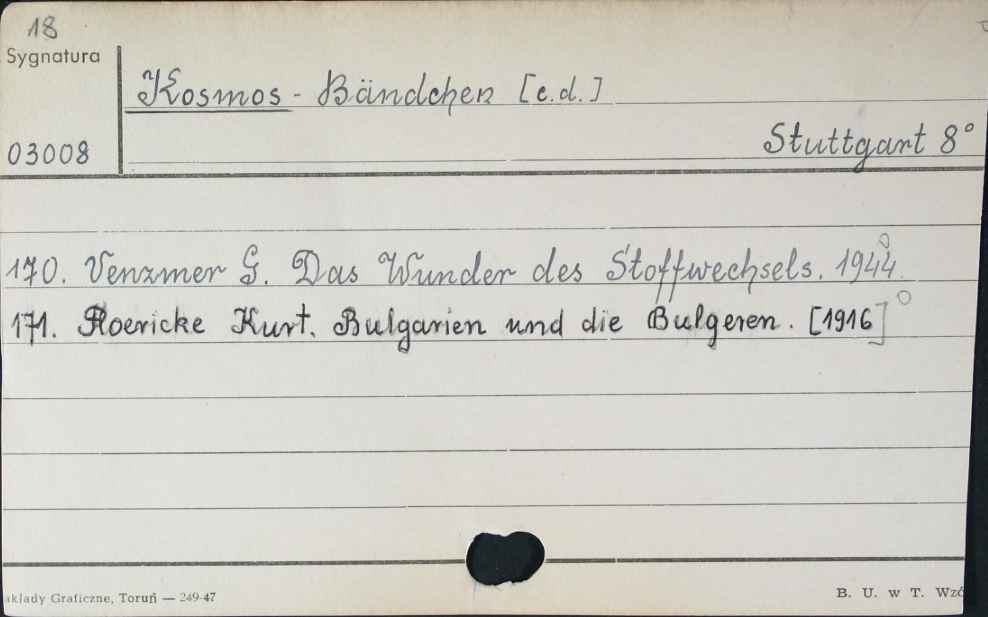 18
Sygnatura
Kosmos - Bändchen [c.d.]
03008
Stuttgart 8°
170. Venzmer G. Das Wunder des Stoffwechsels. 1944
171. Floericke Kurt. Bulgarien und die Bulgeren. [1916]
akłady Graficzne, Toruń — 249-47
B. U. w T. Wzó